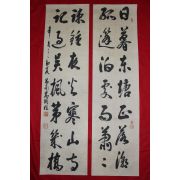 日暮東塘正落潮
孤篷泊處雨蕭〻
疎鍾夜火寒山寺
記過吳楓第幾橋